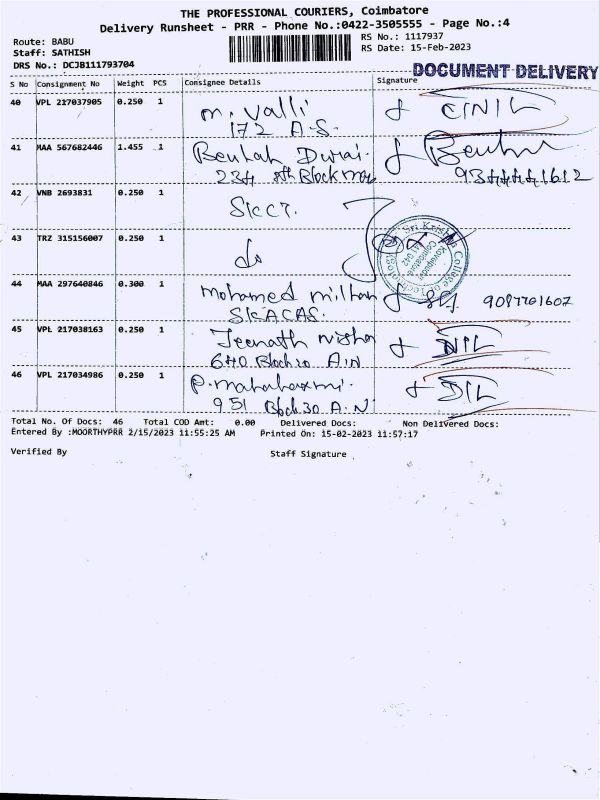 THE PROFESSIONAL COURIERS, Coimbatore
Delivery Runsheet - PRR - Phone No.:0422-3505555 - Page No.:4
Route: BABU
Staff: SATHISH
DRS No.: DCJB111793704
RS No.: 1117937
RS Date: 15-Feb-2023
DOCUMENT DELIVERY
S No Consignment No Weight PCS Consignee Details Signature
40 VPL 217037905 0.250 1 m. Valli
172 A.S.
41 MAA 567682446 1.455 1 Beulah Durai.
234 8th Block
42 VNB 2693831 0.250 1 SKCT.
43 TRZ 315156007 0.250 1 do
Sri Krishna College of Technology
Kovaipudur
Coimbatore
641 042
44 MAA 297640846 0.300 1 Mohamed milhan
SKACAS.
45 VPL 217038163 0.250 1 Jeenath nisha
640 Block 10 A.N
46 VPL 217034986 0.250 1 P. mahalaxmi.
951 Block 30 A.N
Total No. Of Docs: 46 Total COD Amt: 0.00 Delivered Docs: Non Delivered Docs:
Entered By :MOORTHYPRR 2/15/2023 11:55:25 AM Printed On: 15-02-2023 11:57:17
Verified By Staff Signature